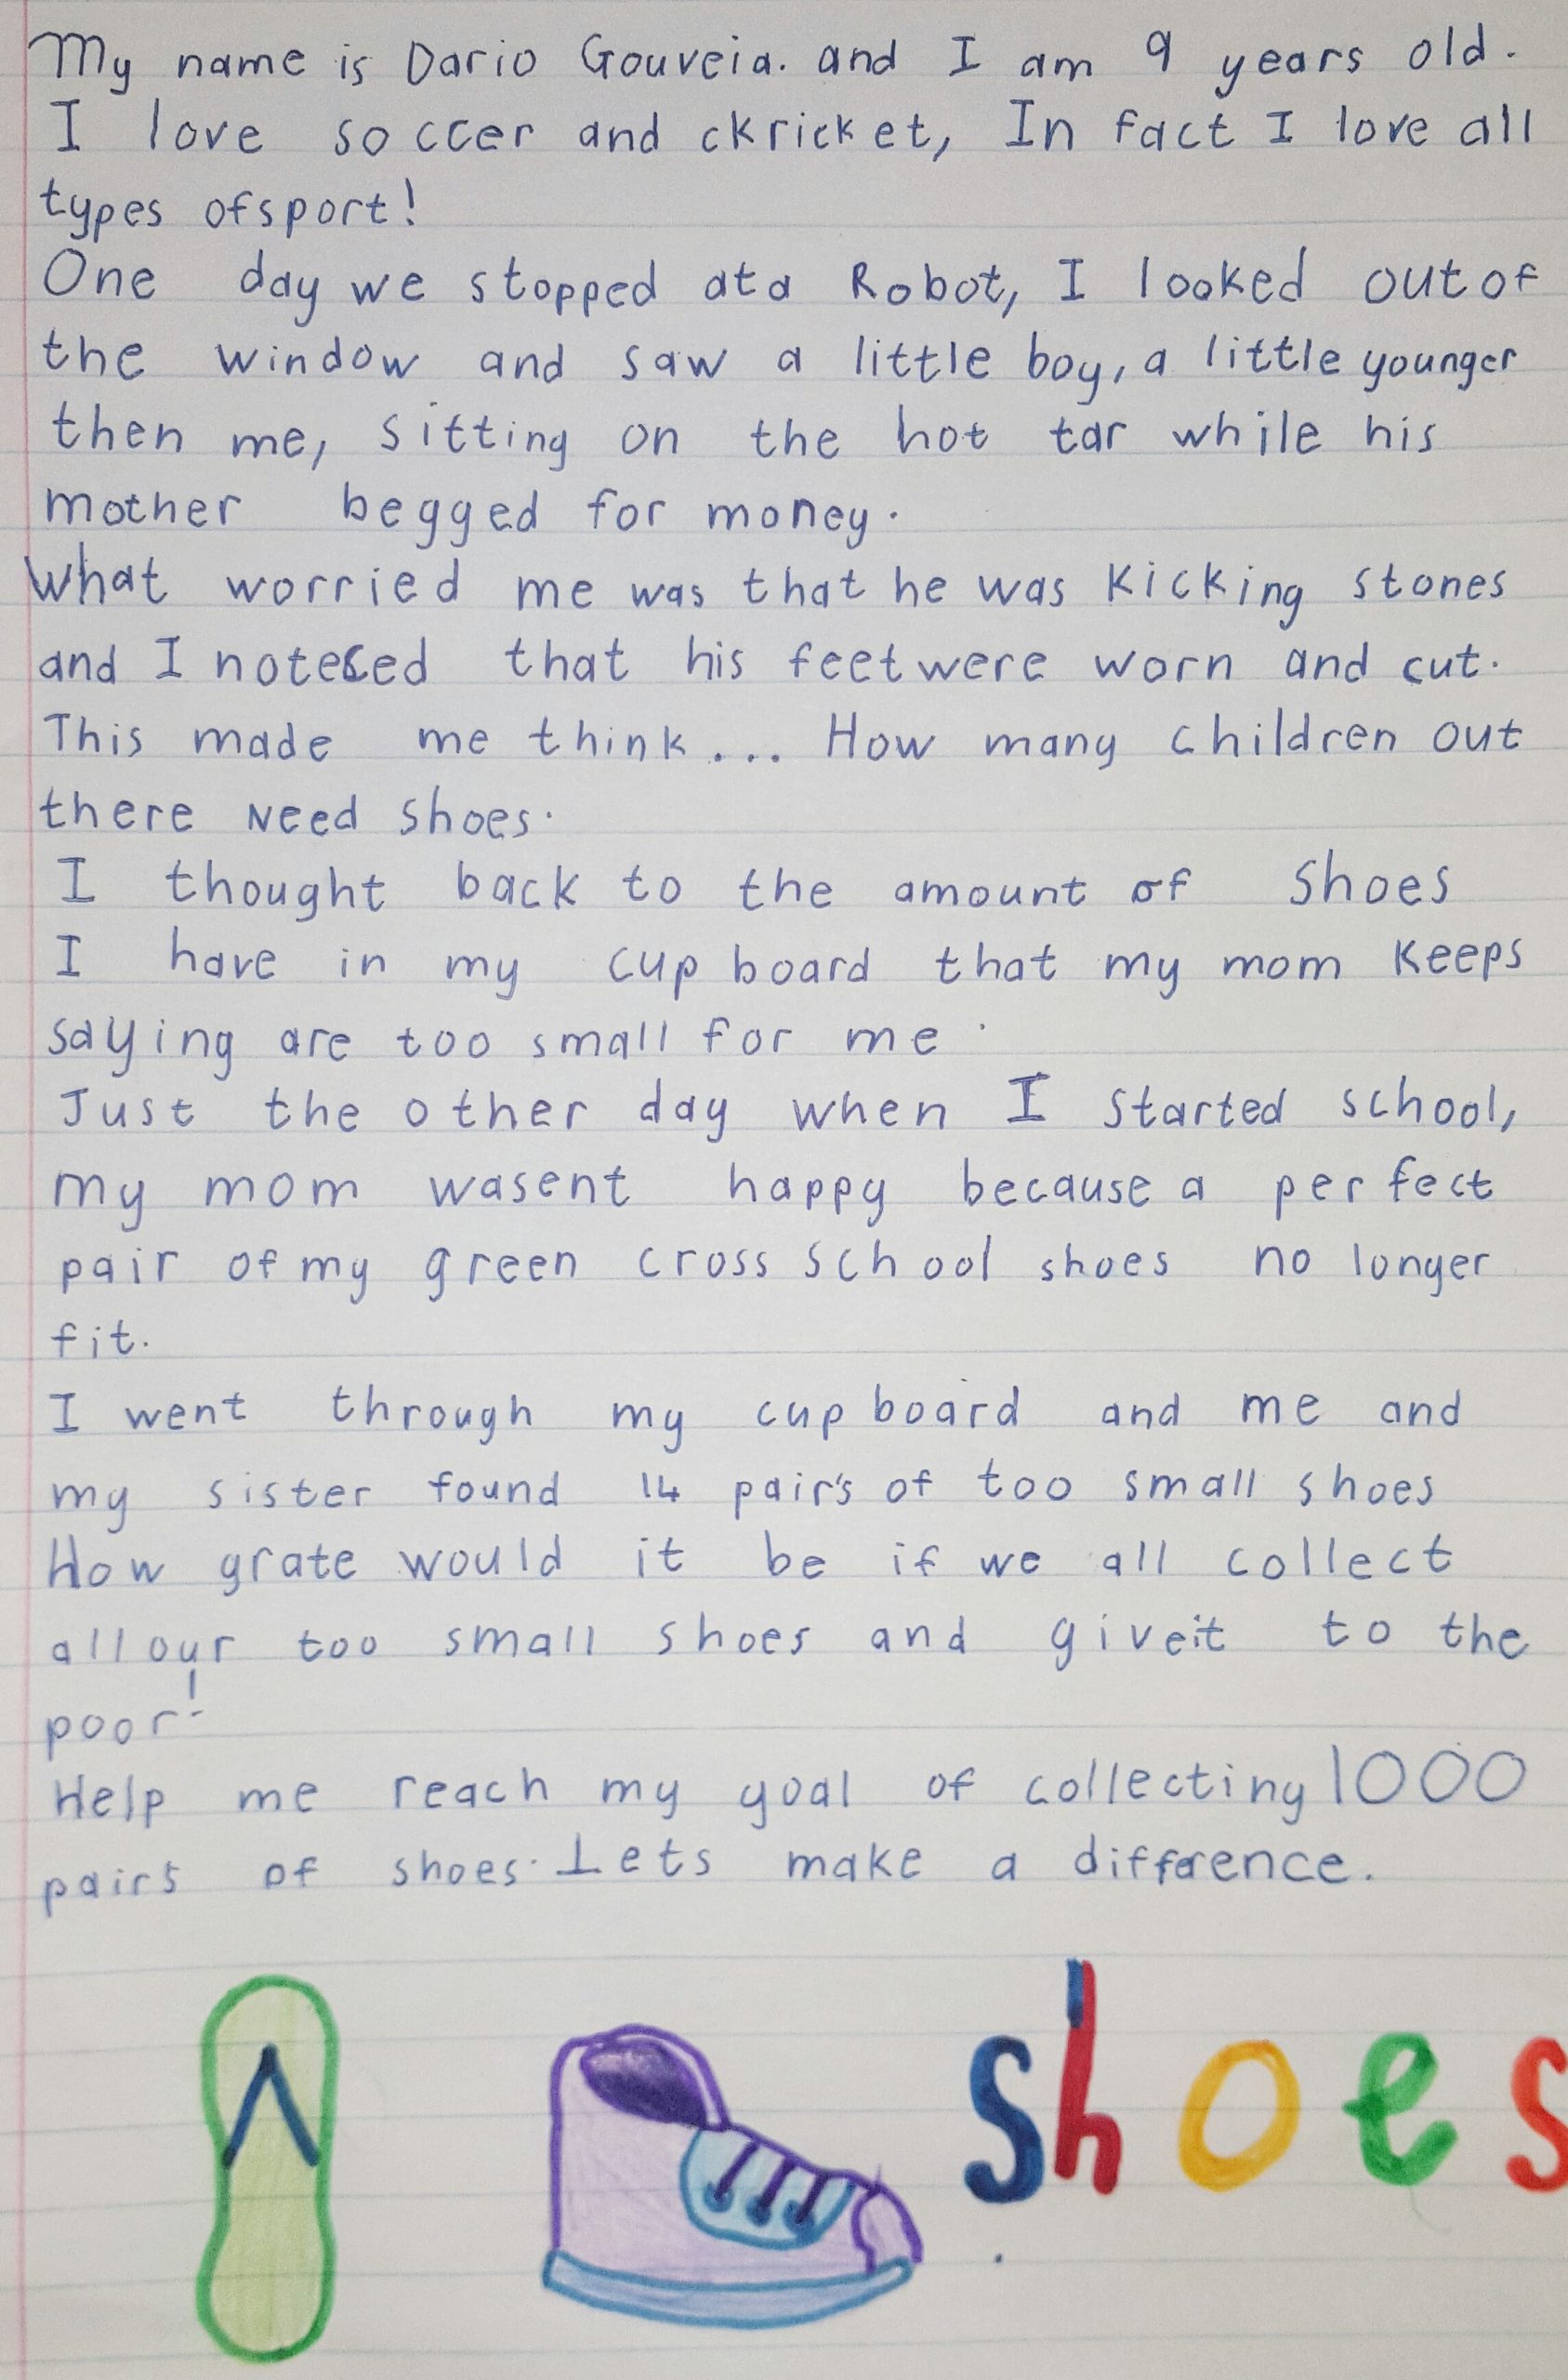 My name is Dario Gouveia. and I am 9 years old.
I love soccer and ckricket, In fact I love all
types of sport!
One day we stopped at a Robot, I looked out of
the window and saw a little boy, a little younger
then me, sitting on the hot tar while his
mother begged for money.
What worried me was that he was kicking stones
and I noteced that his feet were worn and cut.
This made me think... How many children out
there Need shoes.
I thought back to the amount of shoes
I have in my cup board that my mom keeps
saying are too small for me.
Just the other day when I started school,
my mom wasent happy because a perfect
pair of my green cross school shoes no longer
fit.
I went through my cup board and me and
my sister found 14 pair's of too small shoes
How grate would it be if we all collect
all our too small shoes and give it to the
poor!
Help me reach my goal of collecting 1000
pairs of shoes. Lets make a difference.
shoes